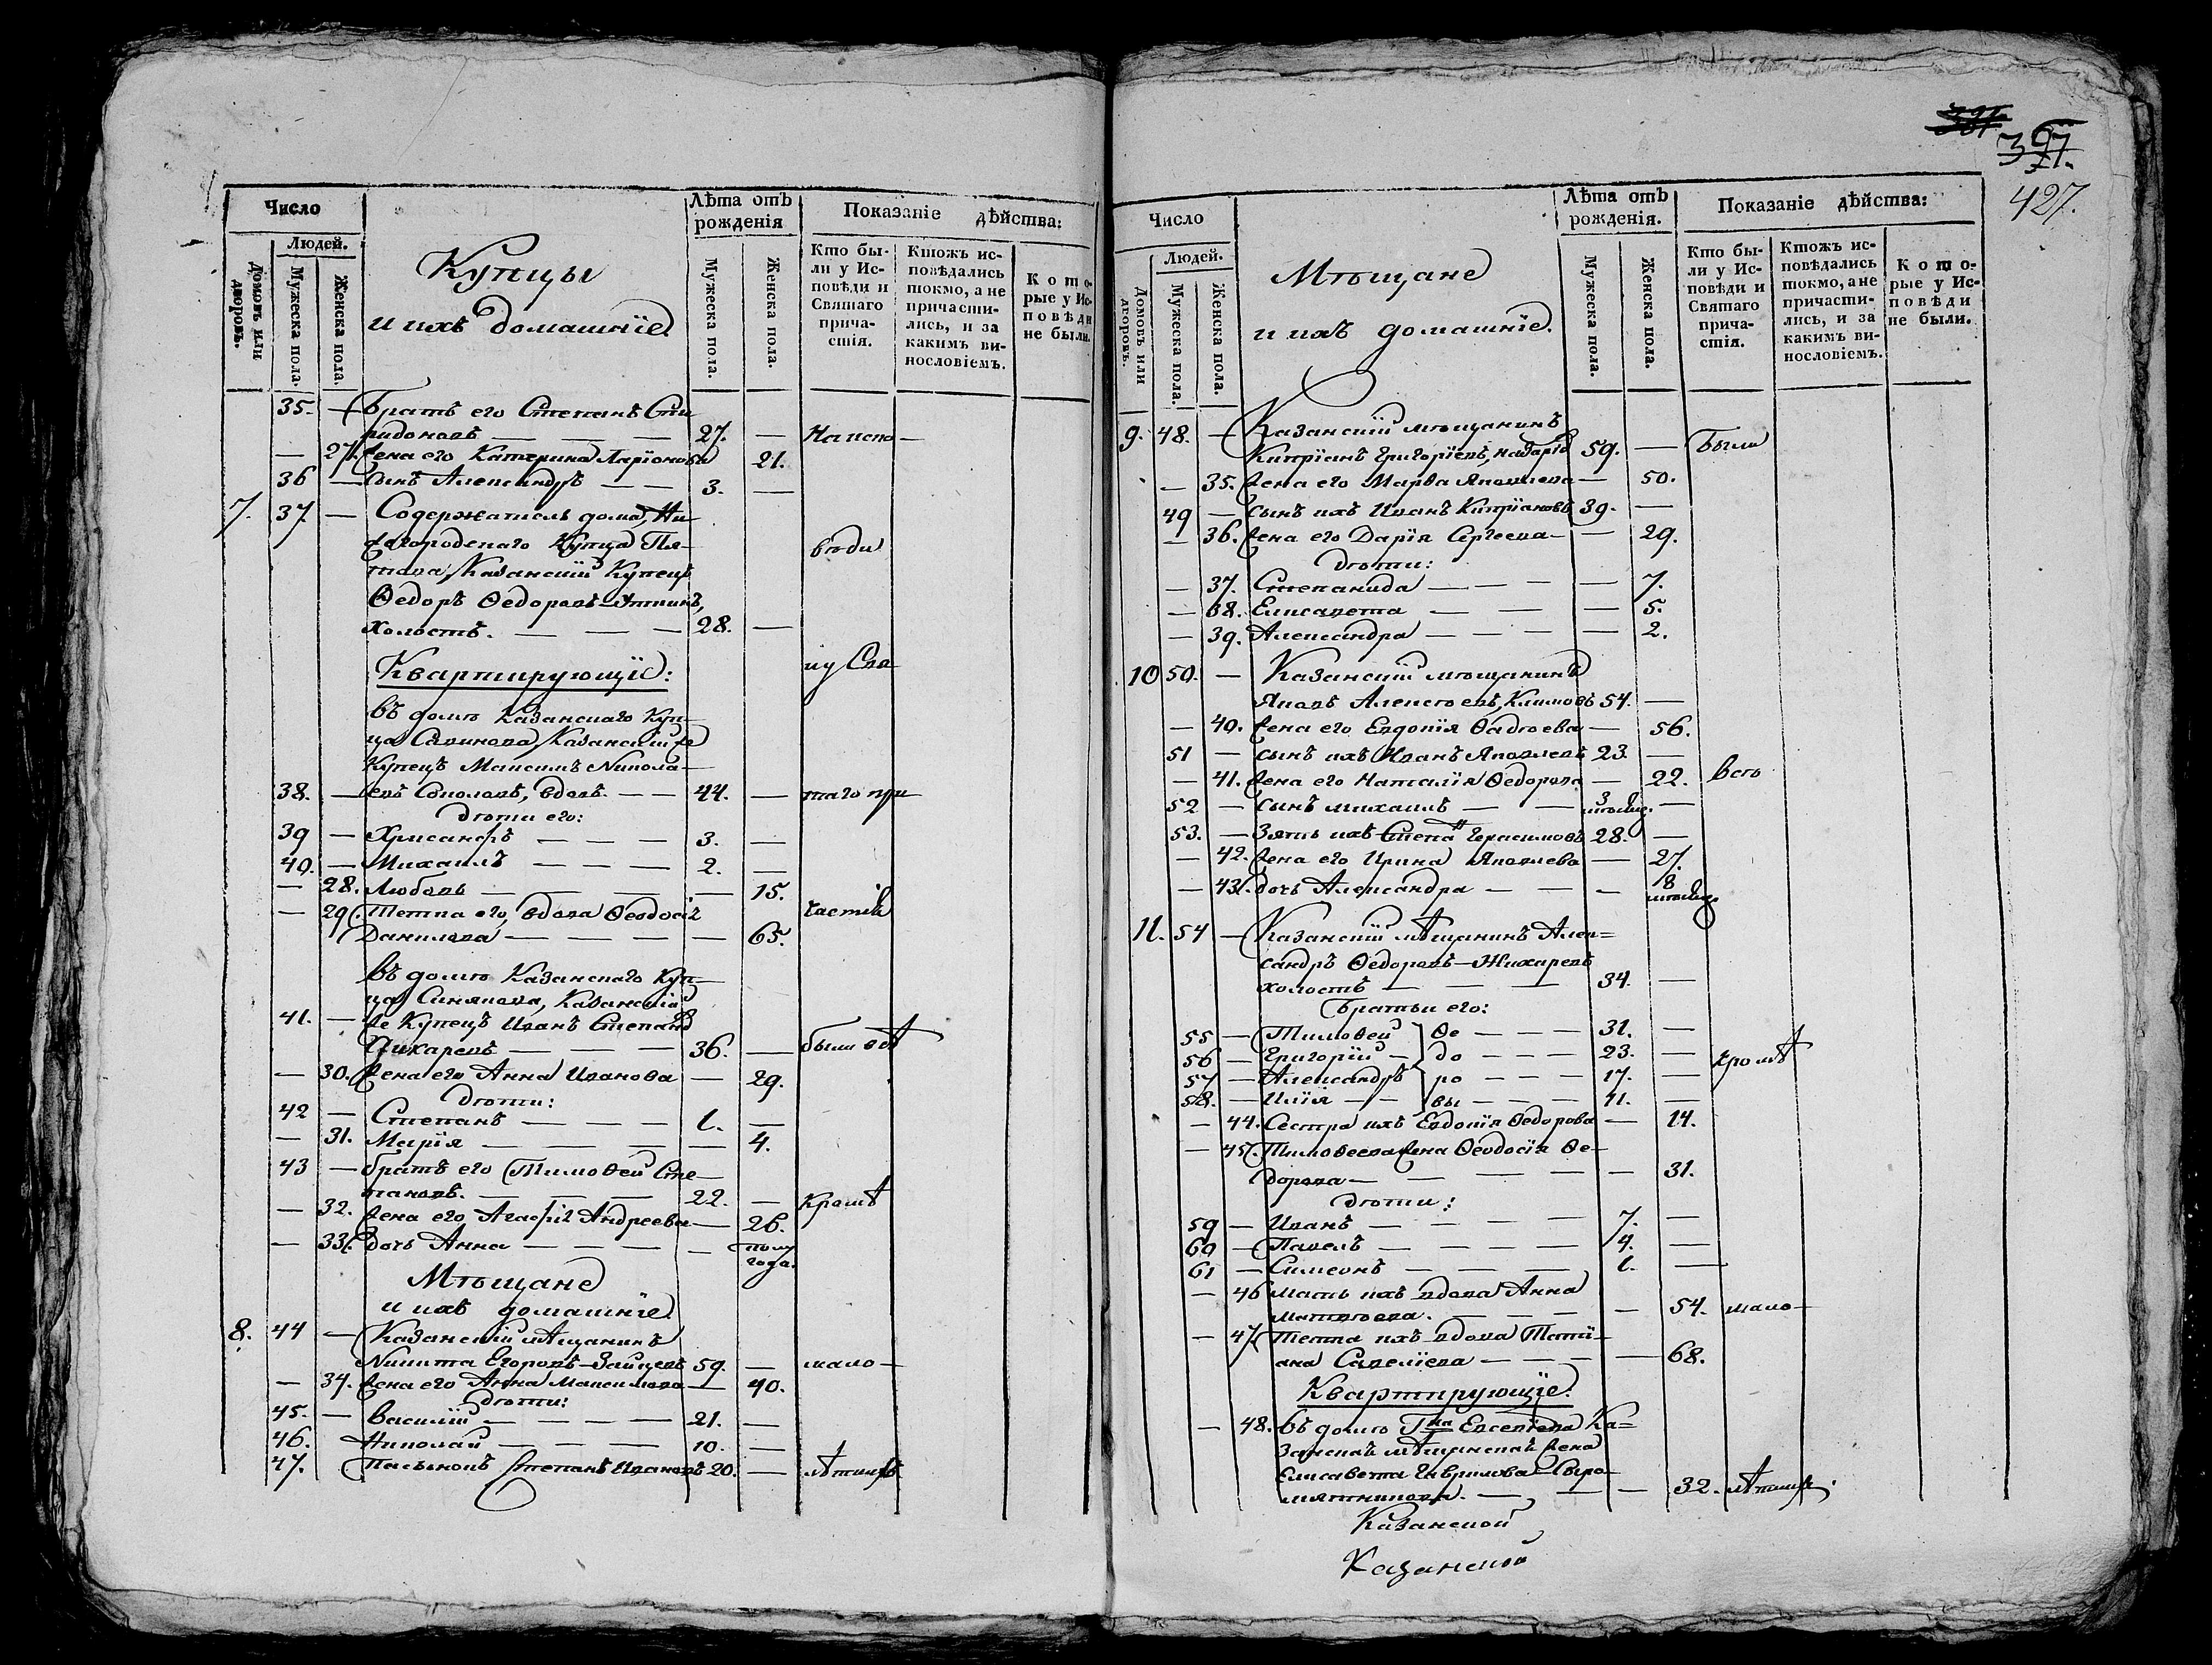 381.
397
427.
Число
Людей.
Домовъ или дворовъ.
Мужеска пола.
Женска пола.
Купцы
и ихъ домашніе.
Лѣта отъ рожденія
Мужеска пола.
Женска пола.
Показаніе дѣйства:
Кто были у Исповѣди и Святаго причастія.
Ктожъ исповѣдались токмо, а не причастились, и за какимъ винословіемъ.
Которые у Исповѣди не были.
35. — Братъ его Степанъ Спи
ридоновъ — — — 27. — На испо—
— 27. Жена его Катерина Ларіонова 21.
36 — Сынъ Александръ — — 3. —
7. 37. — Содержатель дома, Ни
жегородскаго Купца Пя—
това, Казанскій Купецъ вѣди
Ѳедоръ Ѳедоровъ
холостъ. — — — 28. —
Квартирующіе: и у Свя
въ домѣ Казанскаго Куп—
ца Савинова, Казанскій же
Купецъ Максимъ Никола—
38. — евъ Соколовъ, вдовъ. — — 44. — таго при
дѣти его:
39 — Хрисанфъ — — — 3. —
40. — Михаилъ — — — 2. —
— 28. Любовь — — — — 15.
— 29. Тетка его, вдова Ѳеодосія частія
Данилова — — — — — 65.
въ домѣ Казанскаго Куп—
ца Синякова, Казанскій
41. — же Купецъ Иванъ Степанъ
Жихаревъ — — — 36. — были всѣ
— 30. Жена его Анна Иванова — 29.
дѣти:
42 — Степанъ — — — 1. —
— 31. Марія — — — — 4.
43 — братъ его Тимоѳей Сте—
пановъ. — — — 22. — кромѣ
— 32. Жена его Агафія Андреева — 26.
— 33. Дочь Анна — — — — полу
года.
Мѣщане
и ихъ домашніе
8. 44 — Казанскій мѣщанинъ
Никита Егоровъ—Зайцевъ 59. — мало—
— 34. Жена его Анна Максимова — 40.
дѣти:
45. — Василій — — — — 21. —
46. Николай — — — 10. —
47. Пасынокъ Степанъ Ивановъ 20. — лѣтнихъ
Число
Людей.
Домовъ или дворовъ.
Мужеска пола.
Женска пола.
Мѣщане
и ихъ домашніе.
Лѣта отъ рожденія.
Мужеска пола.
Женска пола.
Показаніе дѣйства:
Кто были у Исповѣди и Святаго причастія.
Ктожъ исповѣдались токмо, а не причастились, и за какимъ винословіемъ.
Которые у Исповѣди не были.
9. 48. — Казанскій мѣщанинъ
Кипріанъ Григоріевъ, 59. — Были
— 35. Жена его Марѳа Яковлева — 50.
49 — сынъ ихъ Иванъ Кипріановъ 39. —
— 36. Жена его Дарія Сергеева — — 29.
дѣти:
— 37. Степанида — — — — — 7.
— 38. Елисавета — — — — 5.
— 39. Александра — — — — — 2.
10 50. — Казанскій мѣщанинъ
Яковъ Алексѣевъ, Климовъ 54. —
— 40. Жена его Евдокія Ѳадѣева — 56.
51 — сынъ ихъ Иванъ Яковлевъ 23. —
— 41. Жена его Наталія Ѳедорова — 22. всѣ
52 — сынъ михаилъ — — 3 мѣсяц. —
53. — Зять ихъ Степанъ Герасимовъ 28. —
— 42. Жена его Ирина Яковлева — 27.
— 43. дочь Александра — — — 8 мѣсяц.
11. 54 — Казанскій мѣщанинъ Алек=
сандръ Ѳедоровъ—Жихаревъ
холостъ — — — 34. —
Братьи его:
55 — Тимоѳей Ѳе — — — 31. —
56 — Григорій — до — — — 23. — кромѣ
57 — Александръ ро — — — 17. —
58. — Илія — — вы — — — 11. —
— 44. Сестра ихъ Евдокія Ѳедорова — 14.
— 45. Тимоѳеева жена Ѳеодосія Ѳе—
дорова — — — — — 31.
дѣти:
59 — Иванъ — — — — 7. —
60 — Павелъ — — — — 4. —
61 — Симеонъ — — — — 1. —
— 46 мать ихъ вдова Анна
матвѣева. — — — — 54. мало—
— 47. Тетка ихъ вдова Тати—
ана Савеліева — — — — 68.
Квартирующіе.
— 48. въ домѣ Гна Евсевіева Ка=
занская мѣщанская жена
Елисавета Гаврилова Сыро—
мятникова. — — — 32. лѣтнихъ.
Казанской
Казанской